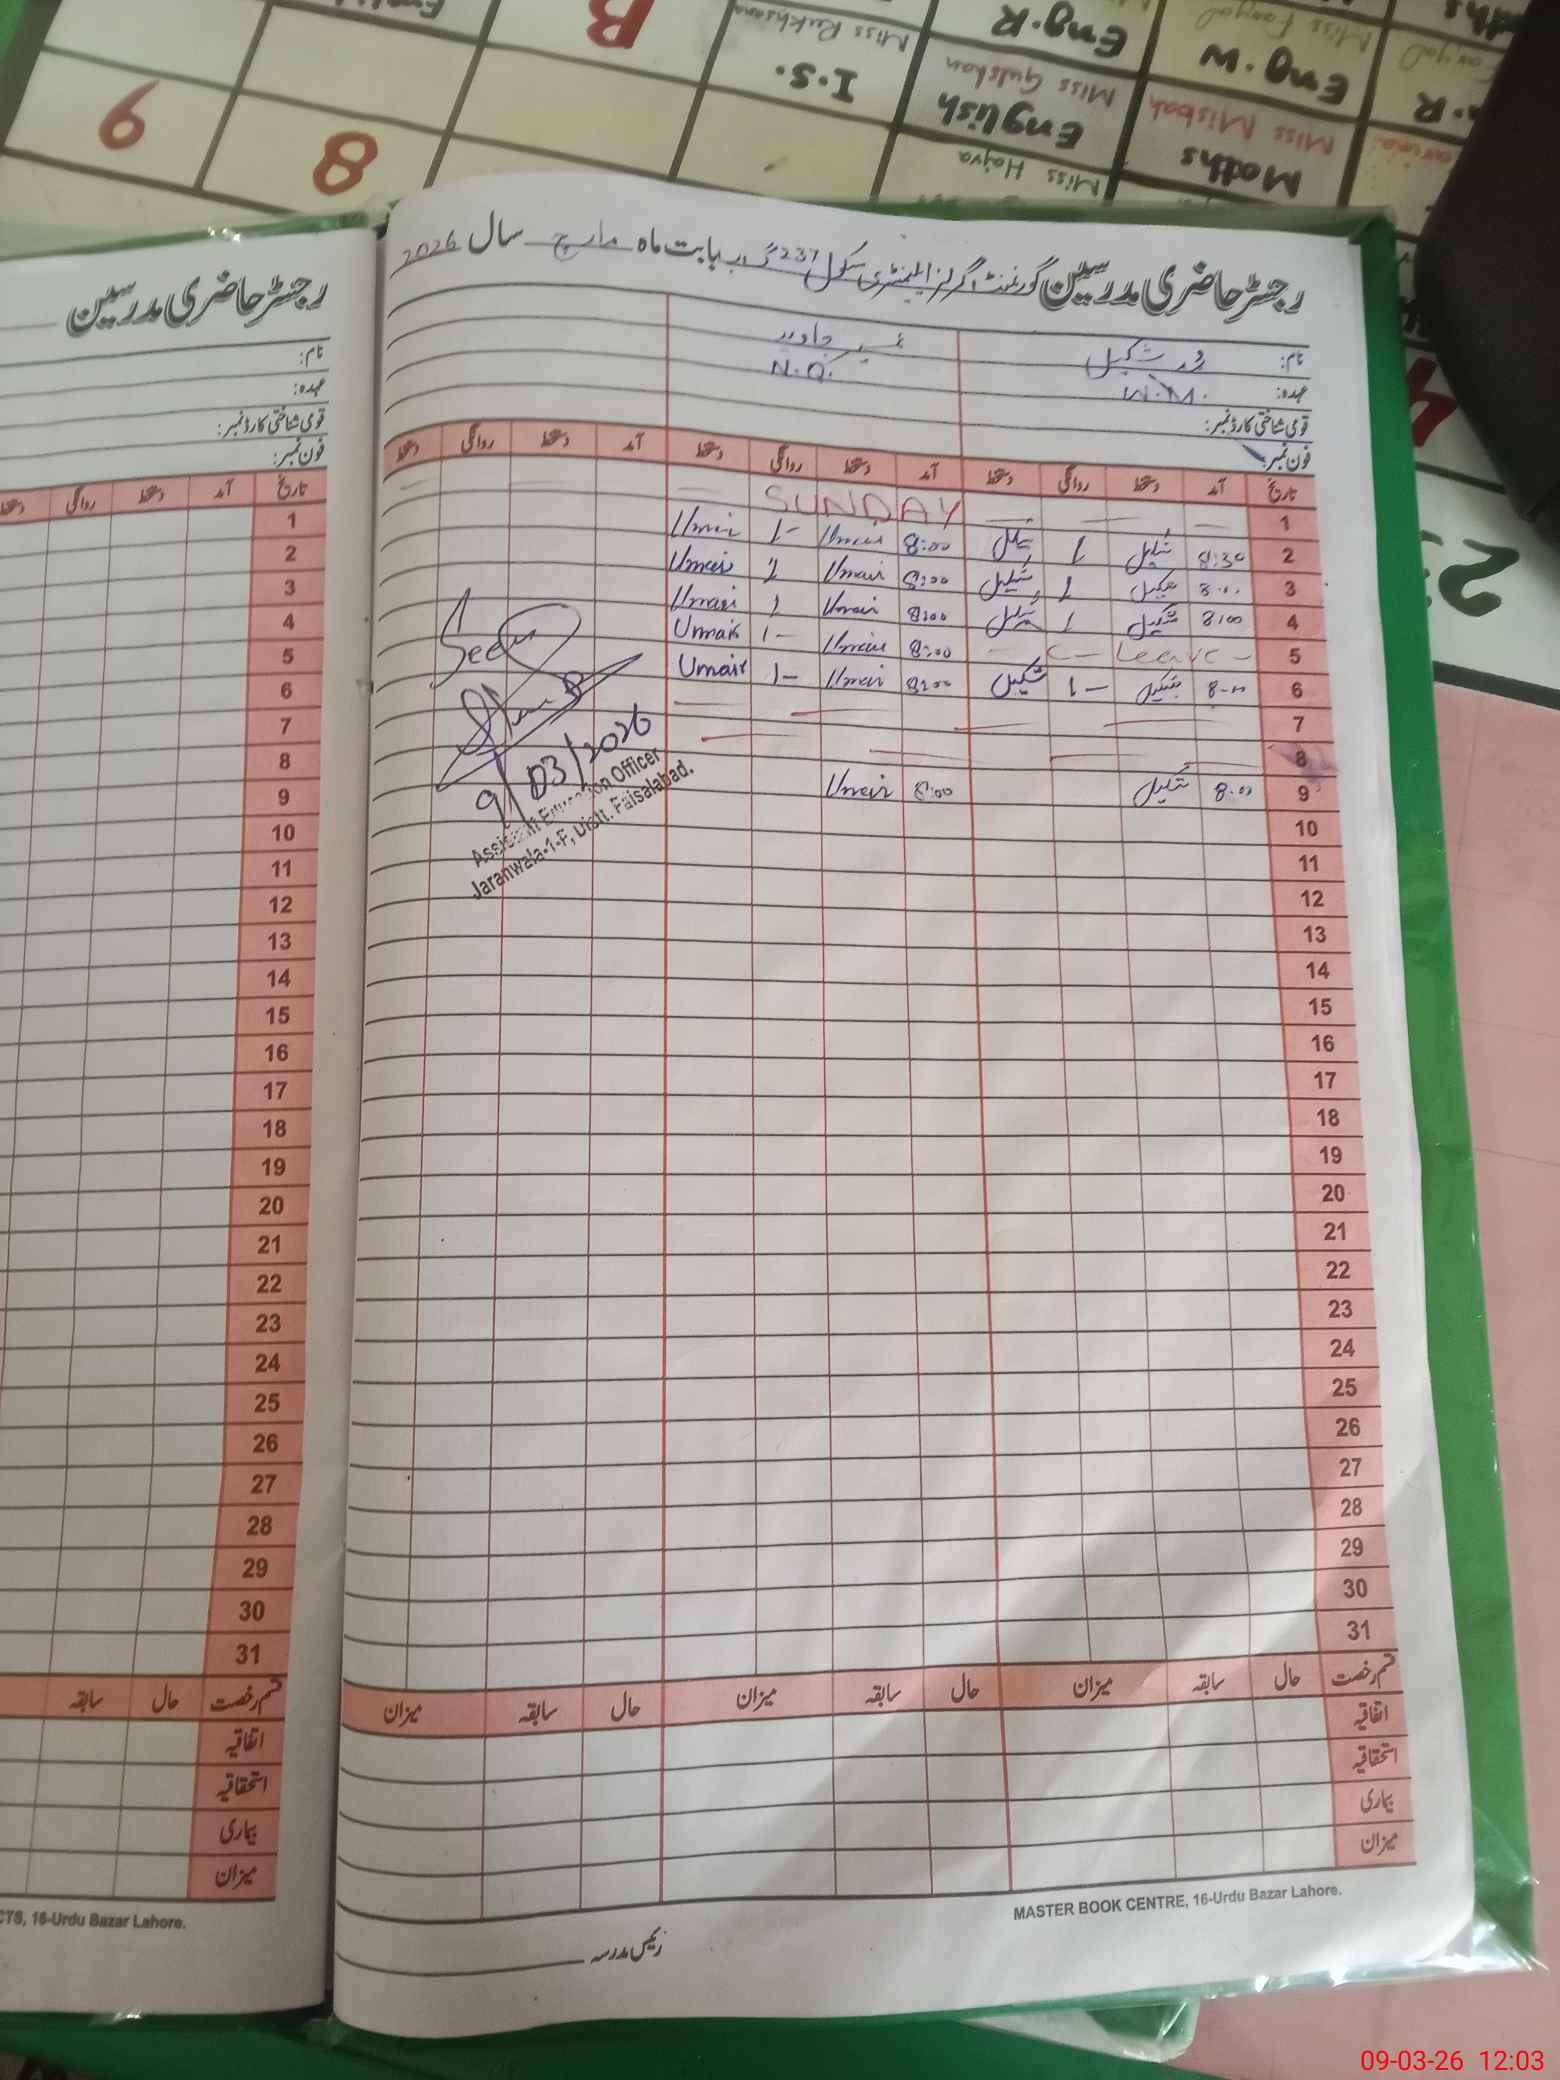 9
8
B
I.S.
Miss Rukhsana
Eng.R
Miss Gulshan
English
Miss Hajra
Eng.W
Miss Misbah
Maths
رجسٹر حاضری مدرسین گورنمنٹ گرلز ایلیمنٹری سکول 237 گ ب بابت ماہ مارچ سال 2026
نام: شکیل جاوید
عہدہ: W.M. N.Q.
قومی شناختی کارڈ نمبر:
فون نمبر:
تاریخ آمد دستخط روانگی دستخط آمد دستخط روانگی دستخط آمد دستخط روانگی دستخط
1 SUNDAY
2 8:30 شکیل 1 شکیل 8:00 Umair 1- Umair
3 8:00 شکیل 1 شکیل 8:00 Umair 1 Umair
4 8:00 شکیل 1 شکیل 8:00 Umair 1 Umair
5 - Leave - 8:00 Umair 1- Umair
6 8:00 شکیل 1- شکیل 8:00 Umair 1- Umair
7
8
9 8:00 شکیل 8:00 Umair
10
11
12
13
14
15
16
17
18
19
20
21
22
23
24
25
26
27
28
29
30
31
Seen
9/03/2026
Assistant Education Officer
Jaranwala-1-F, Distt. Faisalabad.
قسم رخصت حال سابقہ میزان حال سابقہ میزان حال سابقہ میزان
اتفاقیہ
استحقاقیہ
بیماری
میزان
MASTER BOOK CENTRE, 16-Urdu Bazar Lahore.
رئیس مدرسہ
رجسٹر حاضری مدرسین
نام:
عہدہ:
قومی شناختی کارڈ نمبر:
فون نمبر:
تاریخ آمد دستخط روانگی دستخط
1
2
3
4
5
6
7
8
9
10
11
12
13
14
15
16
17
18
19
20
21
22
23
24
25
26
27
28
29
30
31
قسم رخصت حال سابقہ
اتفاقیہ
استحقاقیہ
بیماری
میزان
CTS, 16-Urdu Bazar Lahore.
09-03-26 12:03